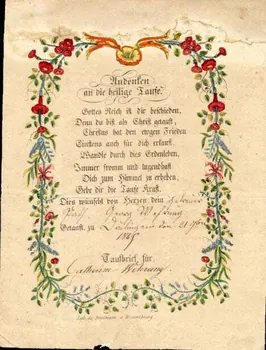 Andenken
an die heilige Taufe.
Gottes Reich ist dir beschieden,
Denn du bist als Christ getauft,
Christus hat den ewgen Frieden
auch für dich erkauft.
Wandle durch dies Erdenleben,
Immer fromm und tugendhaft
Dich zum Himmel zu erheben,
Gebe dir die Taufe Kraft.
Dies wünscht von Herzen dein
Georg
Getauft zu den 21
18
Taufbrief für
Catharina Wehrung
Lith. de Strassbourg